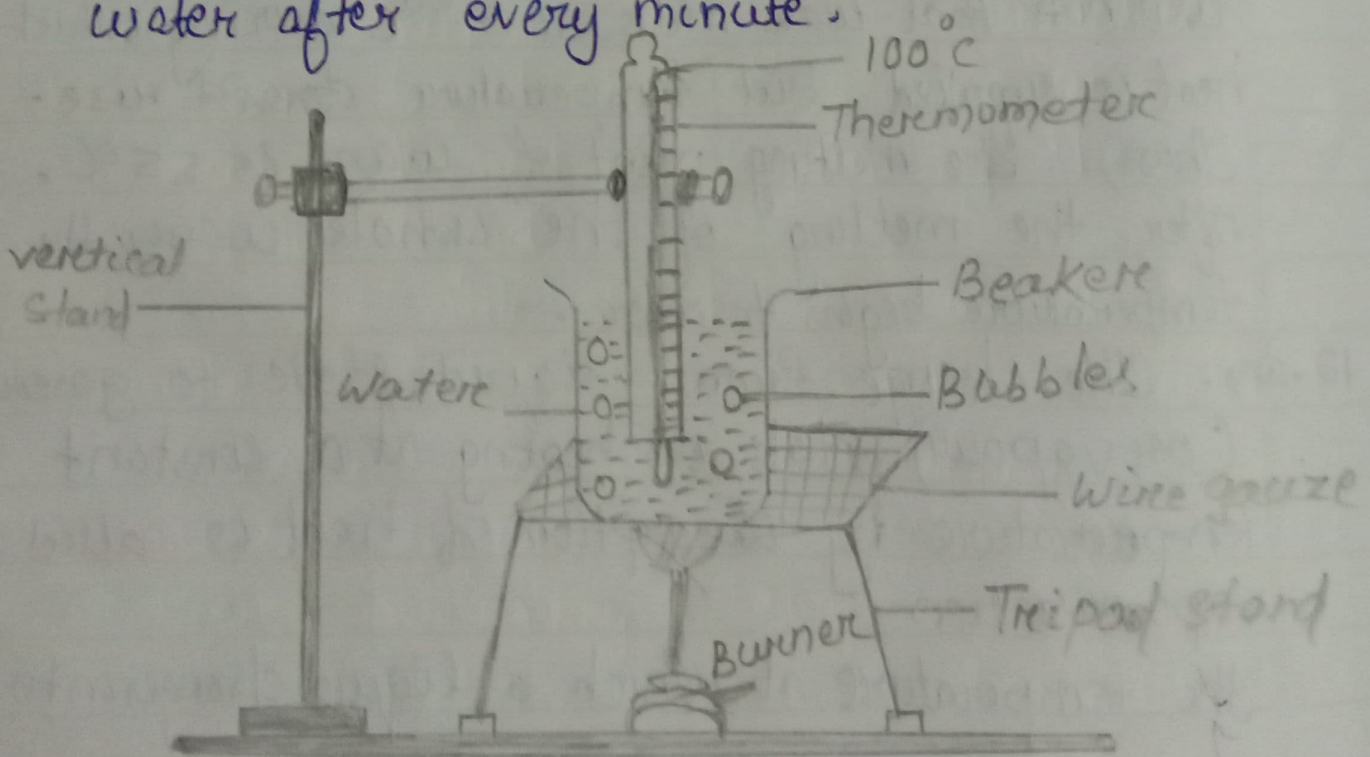 water after every minute.
100°C
Thermometer
vertical
stand
Beaker
Water
Bubbles
Wire gauze
Tripod stand
Burner